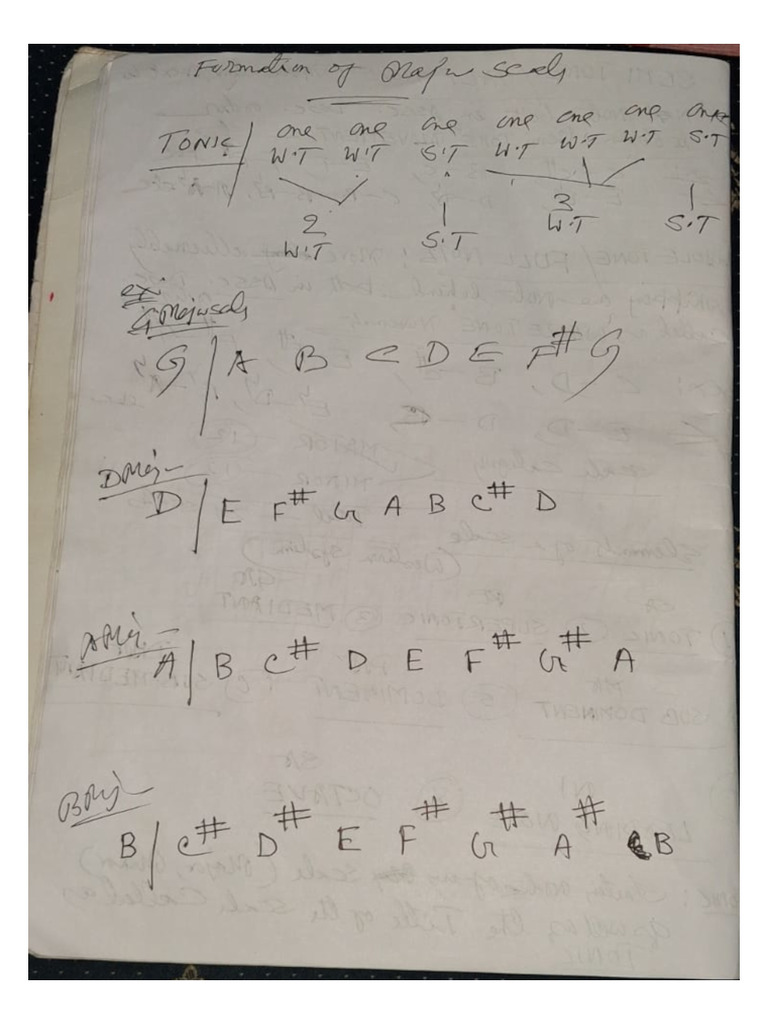 Formation of Major scals
TONIC | one W.T one W.T one S.T one W.T one W.T one W.T one S.T
2 W.T 1 S.T 3 W.T 1 S.T
ex:
G Major scals
G | A B C D E F# G
D Maj -
D | E F# G A B C# D
A Maj -
A | B C# D E F# G# A
B Maj -
B | C# D# E F# G# A# B